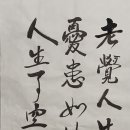 老覺人生
憂患如
人生了